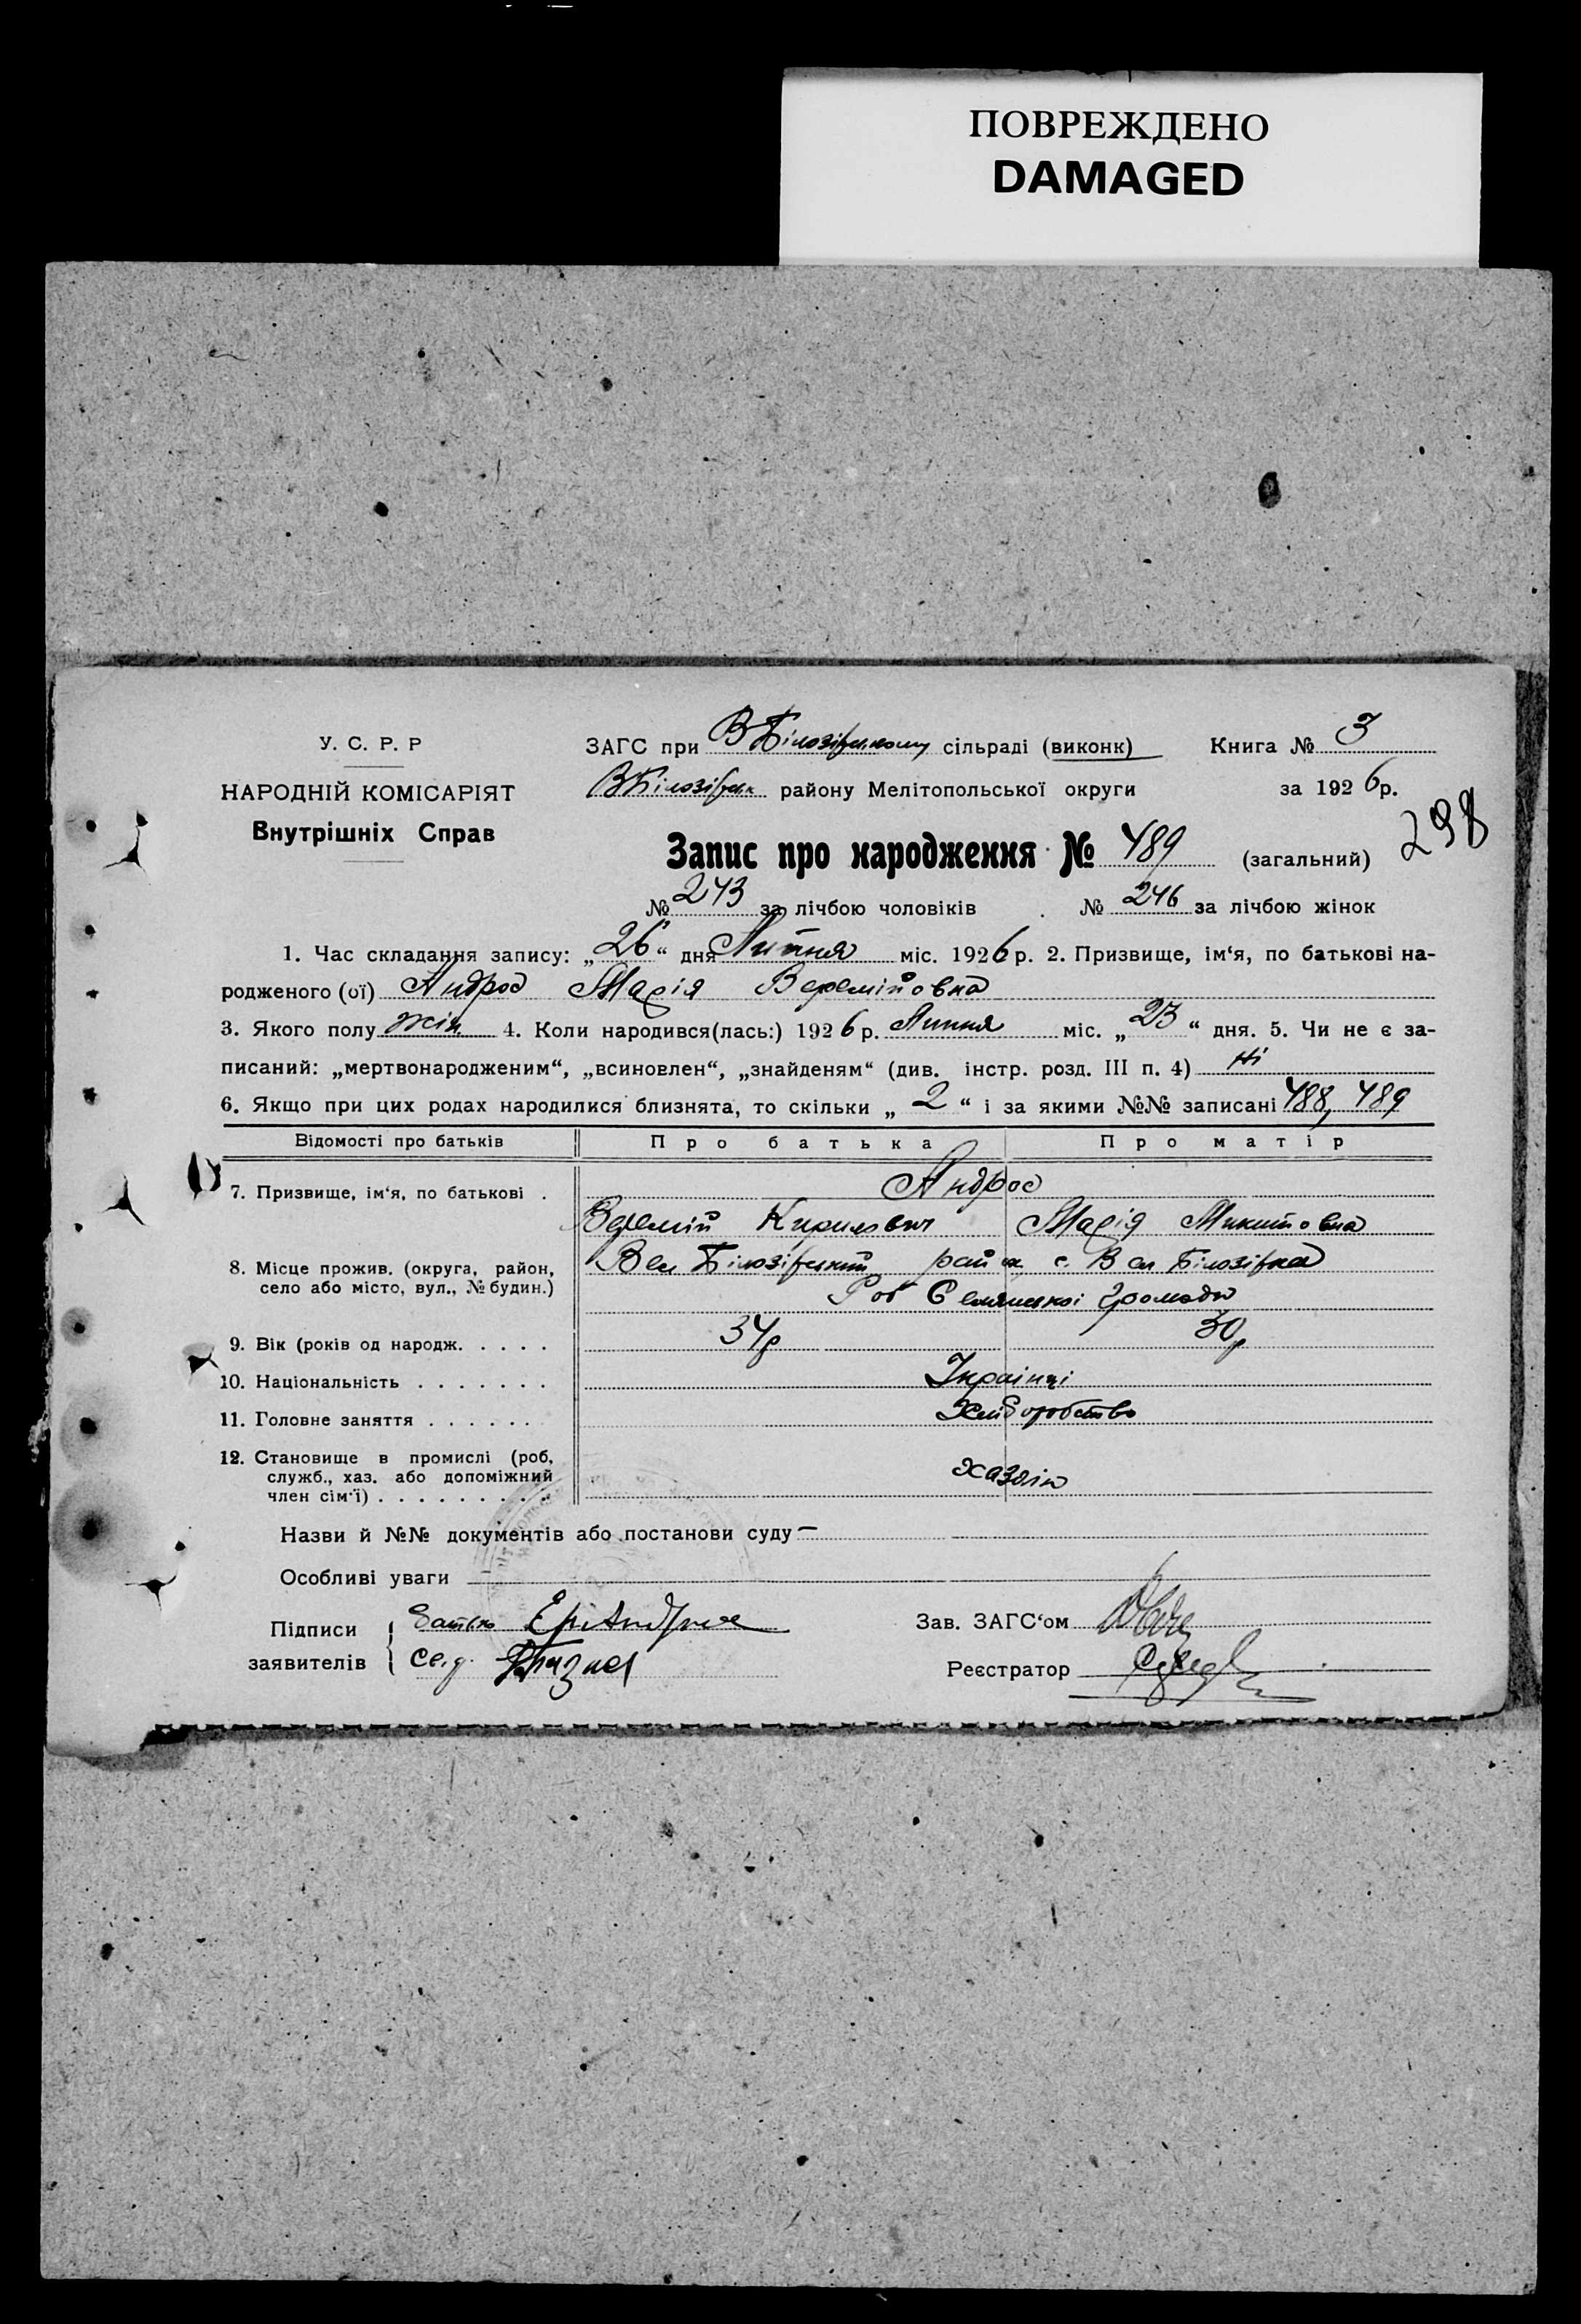 ПОВРЕЖДЕНО
DAMAGED
У. С. Р. Р
ЗАГС при В Білозірському сільраді (виконк) Книга № 3
НАРОДНІЙ КОМІСАРІЯТ
ВБілозірськ району Мелітопольської округи за 1926 р.
Внутрішніх Справ
298
Запис про народження № 489 (загальний)
№ 243 за лічбою чоловіків № 246 за лічбою жінок
1. Час складання запису: „26“ дня Липня міс. 1926 р. 2. Призвище, ім‘я, по батькові на-
родженого (ої) Андрос Марія Веремійовна
3. Якого полу жін 4. Коли народився(лась:) 1926 р. Липня міс. „23“ дня. 5. Чи не є за-
писаний: „мертвонародженим“, „всиновлен“, „знайденям“ (див. інстр. розд. III п. 4) Ні
6. Якщо при цих родах народилися близнята, то скільки „2“ і за якими №№ записані 488, 489
Відомості про батьків Про батька Про матір
7. Призвище, ім‘я, по батькові . Андрос
Веремій Кирилович Марія Микитовна
8. Місце прожив. (округа, район, село або місто, вул., № будин.) Вел Білозірський район, с. Вел Білозірка
Громади
9. Вік (років од народж. . . . . 34р 30р
10. Національність . . . . . . . Українці
11. Головне заняття . . . . . . Хліборобство
12. Становище в промислі (роб,
служб., хаз. або допоміжний
член сім‘ї) . . . . . . . . . хазяїн
Назви й №№ документів або постанови суду —
Особливі уваги
Підписи батько Зав. ЗАГС‘ом
заявителів Реєстратор